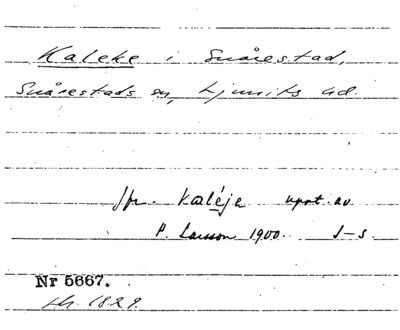 Kaleke i Snårestad,
Snårestads sn, Ljunits hd.
Jfr. Kaléje uppt. av
P. Larsson 1900. J-s.
Nr 5667.
1829.